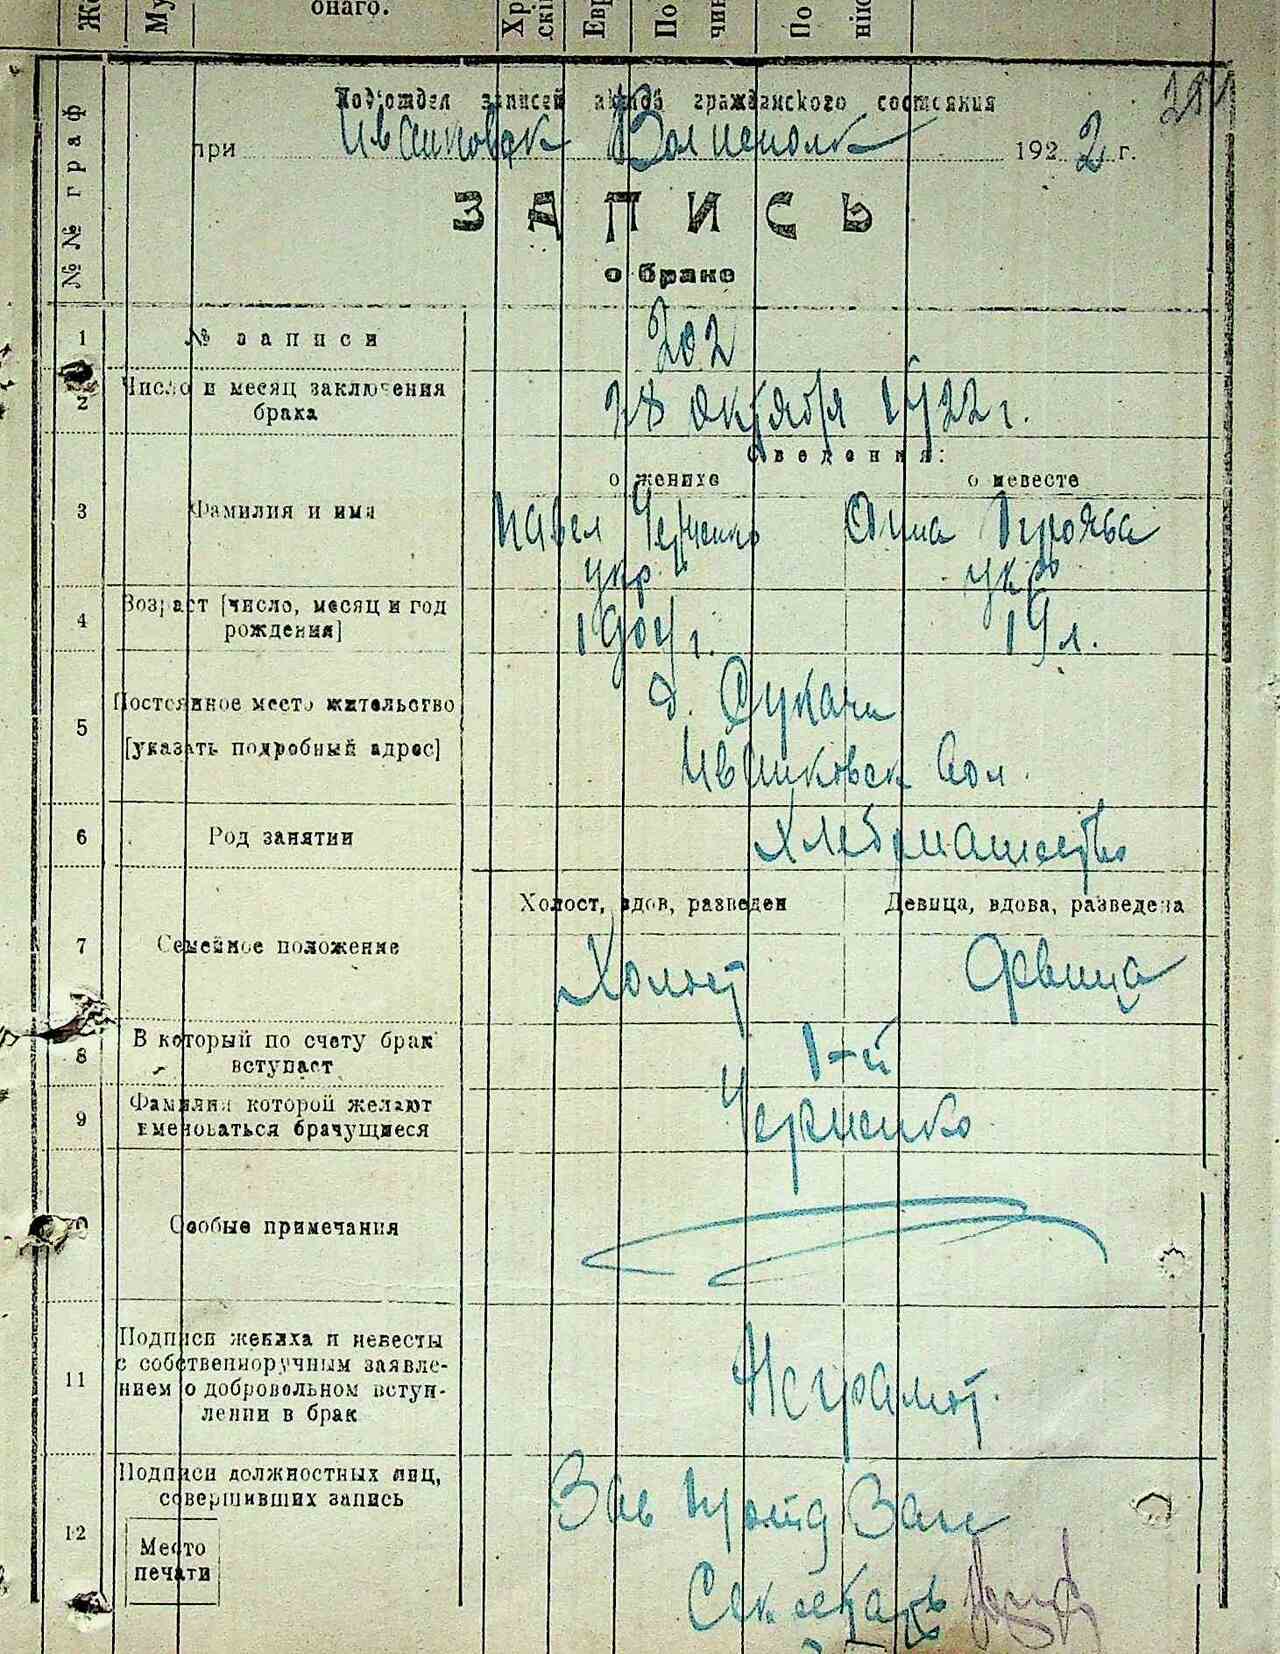 онаго.
Подотдел записей актов гражданского состояния
при Ивашковск Волисполк 1922 г.
ЗАПИСЬ
о браке
№№ граф
1 № записи 202
2 Число и месяц заключения брака 28 октября 1922 г.
Сведения:
о женихе о невесте
3 Фамилия и имя Павел Черненко Анна
укр. укр
4 Возраст [число, месяц и год рождения] 1904 г. 19 л.
5 Постоянное место жительство д. Сукачи
[указать подробный адрес] Ивашковск Вол.
6 Род занятии Хлебопашество
Холост, вдов, разведен Девица, вдова, разведена
7 Семейное положение Холост Девица
8 В который по счету брак вступает 1-й
9 Фамилия которой желают именоваться брачущиеся Черненко
10 Особые примечания
11 Подписи жениха и невесты
с собственноручным заявле-
нием о добровольном вступ-
лении в брак Неграмот.
12 Подписи должностных лиц,
совершивших запись Зав Подотд Загс
Место
печати Секретарь